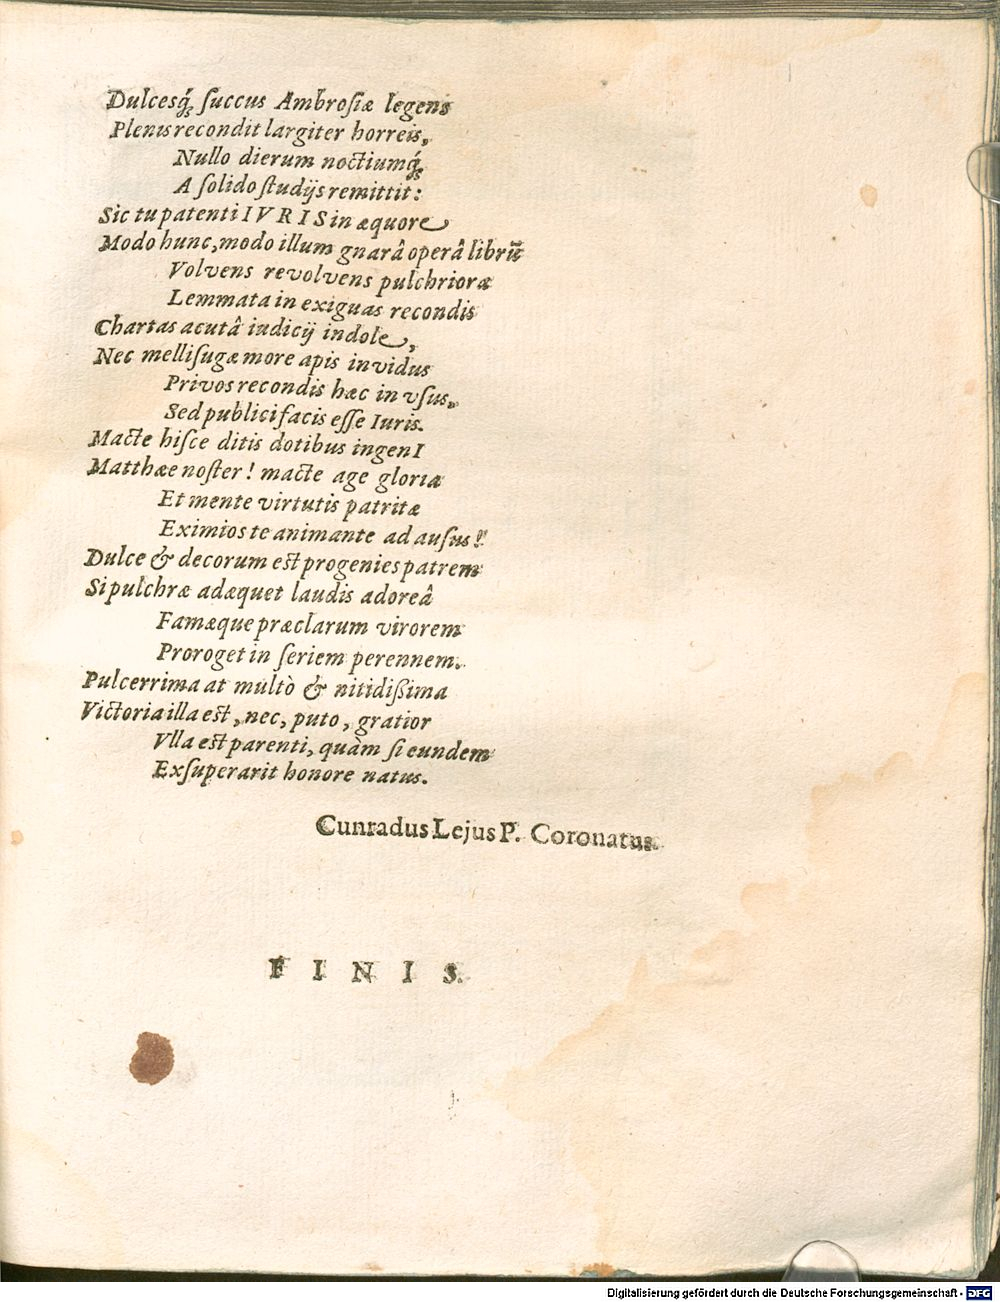 Dulcesq́; ſuccus Ambroſiæ legens
Plenis recondit largiter horreis,
Nullo dierum noctiumq́;
A ſolido ſtudijs remittit:
Sic tu patenti IVRIS in æquore
Modo hunc, modo illum gnarâ operâ librũ
Volvens revolvens pulchriora
Lemmata in exiguas recondis
Chartas acutâ iudicij indole,
Nec melliſugæ more apis invidus
Privos recondis hæc in vſus,
Sed publici facis eſſe Iuris.
Macte hiſce ditis dotibus ingenI
Matthæe noſter! macte age gloria
Et mente virtutis patritæ
Eximios te animante ad auſus!
Dulce & decorum est progenies patrem
Si pulchræ adæquet laudis adoreâ
Famæque præclarum virorem
Proroget in ſeriem perennem.
Pulcerrima at multò & nitidißima
Victoria illa est, nec, puto, gratior
Vlla est parenti, quàm ſi eundem
Exſuperarit honore natus.
Cunradus Lejus P. Coronatus.
FINIS.
Digitalisierung gefördert durch die Deutsche Forschungsgemeinschaft - DFG